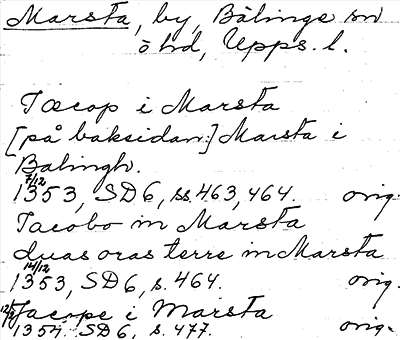 Marsta, by, Bälinge sn
ö hd, Upps. l.
Iæcop i Marsta
[på baksidan:] Marsta i
Balingh.
7/12
1353, SD 6, ss. 463, 464. orig.
Iacobo in Marsta
duas oras terre in Marsta
14/12
1353, SD 6, s. 464. orig.
Jacope i Marsta
1354 SD 6, s. 477. orig.